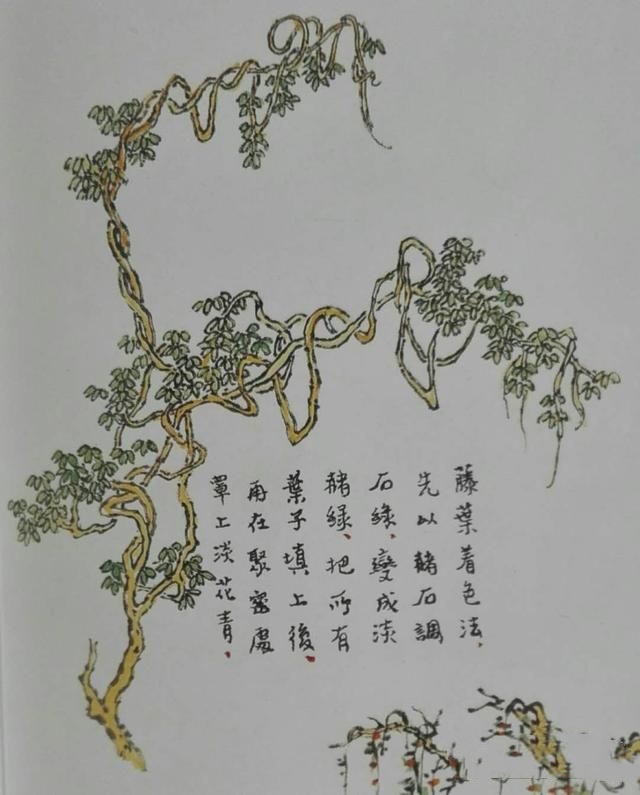 藤葉着色法、
先以赭石調
石綠、變成淡
赭綠、把所有
葉子填上後、
再在聚密處
罩上淡花青、